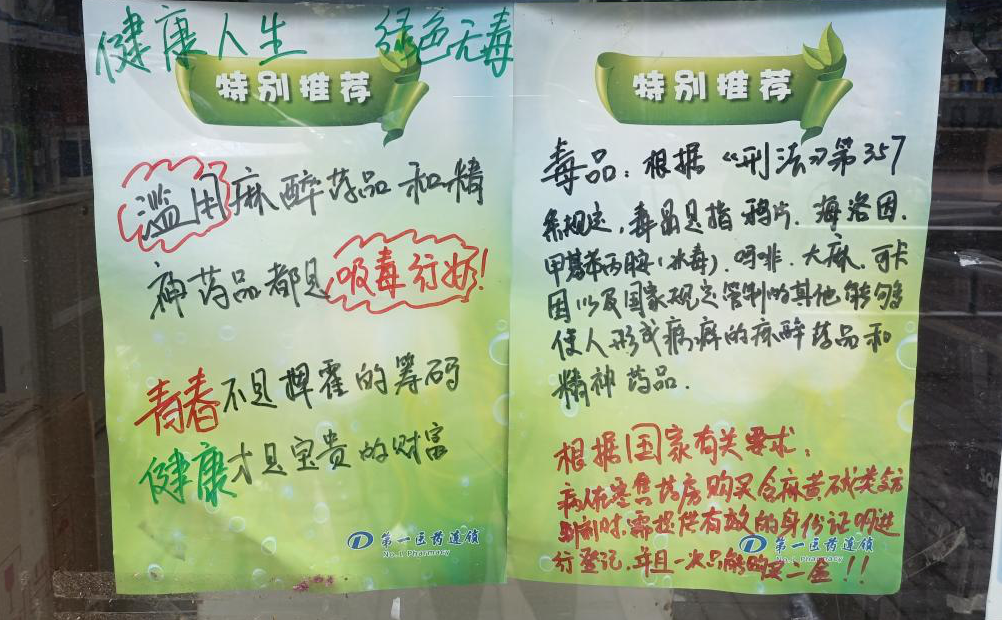 健康人生 绿色无毒
特别推荐
滥用麻醉药品和精
神药品都是吸毒行为!
青春不是挥霍的筹码
健康才是宝贵的财富
第一医药连锁
No.1 Pharmacy
特别推荐
毒品:根据《刑法》第357
条规定,毒品是指鸦片、海洛因、
甲基苯丙胺(冰毒)、吗啡、大麻、可卡
因以及国家规定管制的其他能够
使人形成瘾癖的麻醉药品和
精神药品.
根据国家有关要求,
病人在零售药房购买含麻黄碱类复方
制剂时,需提供有效的身份证明进
行登记,并且一次只能购买一盒!!
第一医药连锁
No.1 Pharmacy